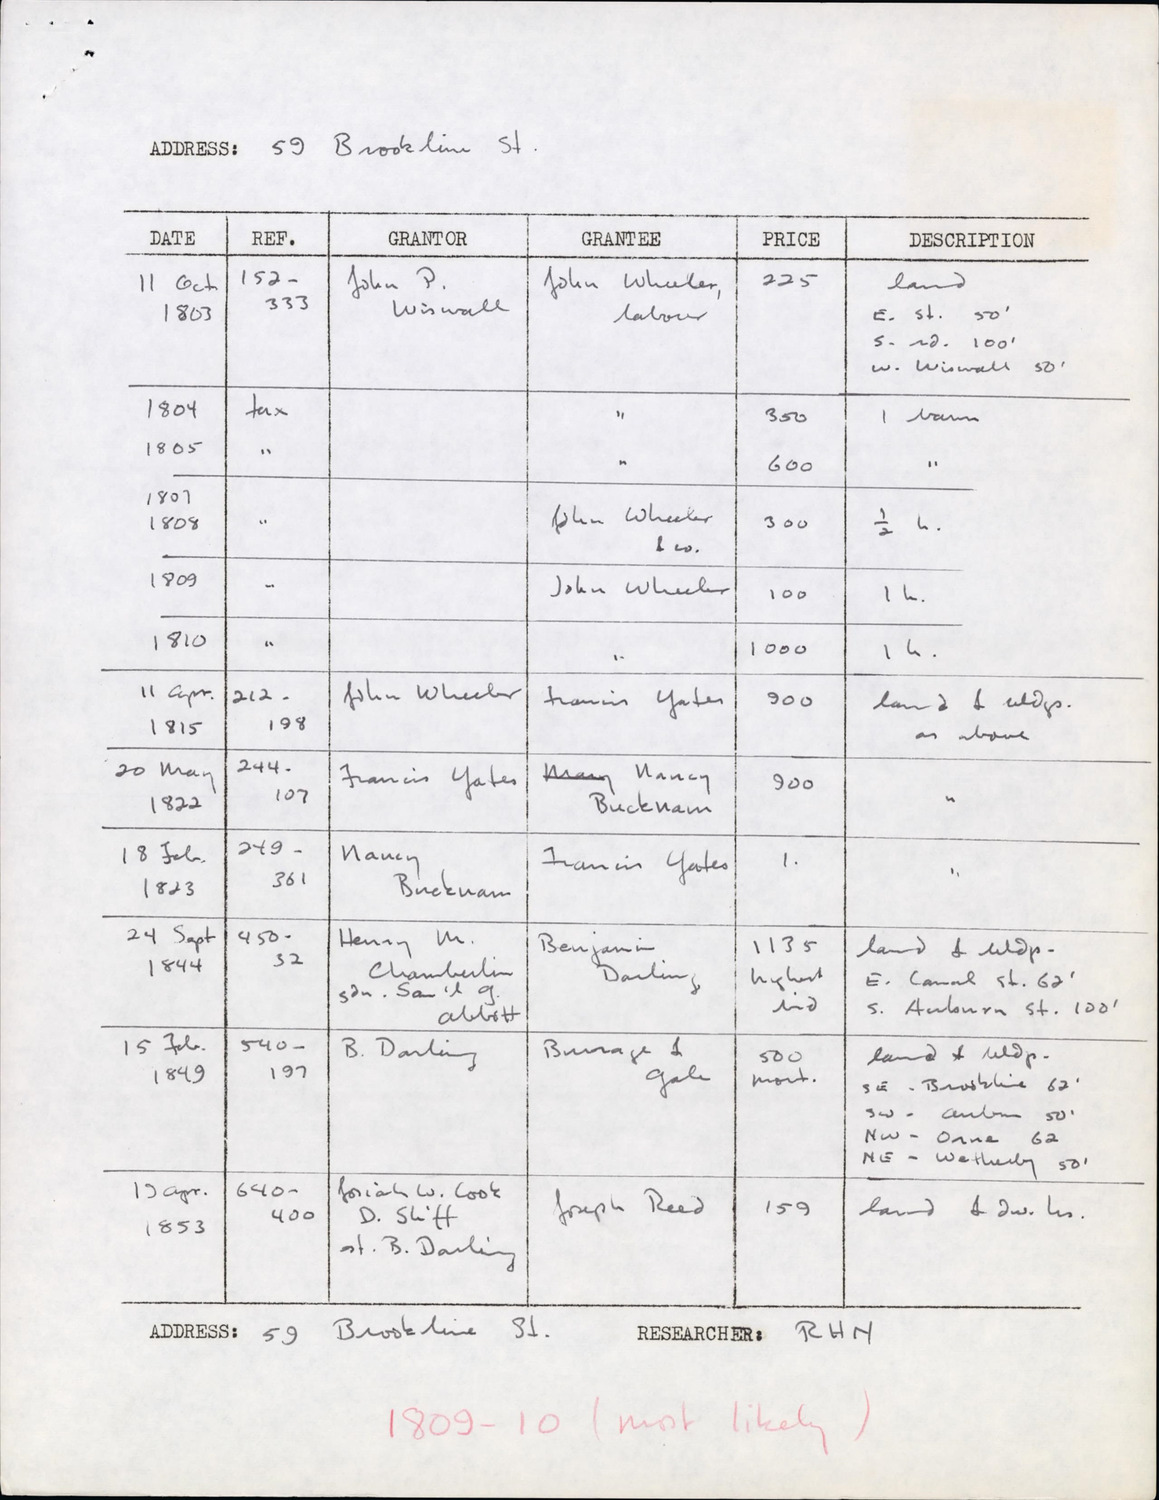 ADDRESS: 59 Brookline St.
DATE REF. GRANTOR GRANTEE PRICE DESCRIPTION
11 Oct 152- John P. John Wheeler, 225 land
1803 333 Wiswall labour E. st. 50'
S. rd. 100'
W. Wiswall 50'
1804 tax " 350 1 barn
1805 " " 600 "
1807
1808 " John Wheeler 300 ½ h.
& co.
1809 " John Wheeler 100 1 h.
1810 " " 1000 1 h.
11 Apr. 212- John Wheeler Francis Yates 900 land & bldgs.
1815 198 as above
20 May 244- Francis Yates Mary Nancy 900 "
1822 107 Bucknam
18 Feb. 249- Nancy Francis Yates 1. "
1823 361 Bucknam
24 Sept 450- Henry M. Benjamin 1135 land & bldp.
1844 32 Chamberlin Darling highest E. Canal St. 62'
gdn. Sam'l G. bid S. Auburn St. 100'
Abbott
15 Feb. 540- B. Darling Burrage & 500 land & bldp.
1849 197 Gale mort. SE - Brookline 62'
SW - Auburn 50'
NW - Orne 62
NE - Wetherby 50'
19 Apr. 640- Josiah W. Cook Joseph Reed 159 land & dw. hs.
1853 400 D. Shff
st. B. Darling
ADDRESS: 59 Brookline St. RESEARCHER: RHN
1809-10 (most likely)